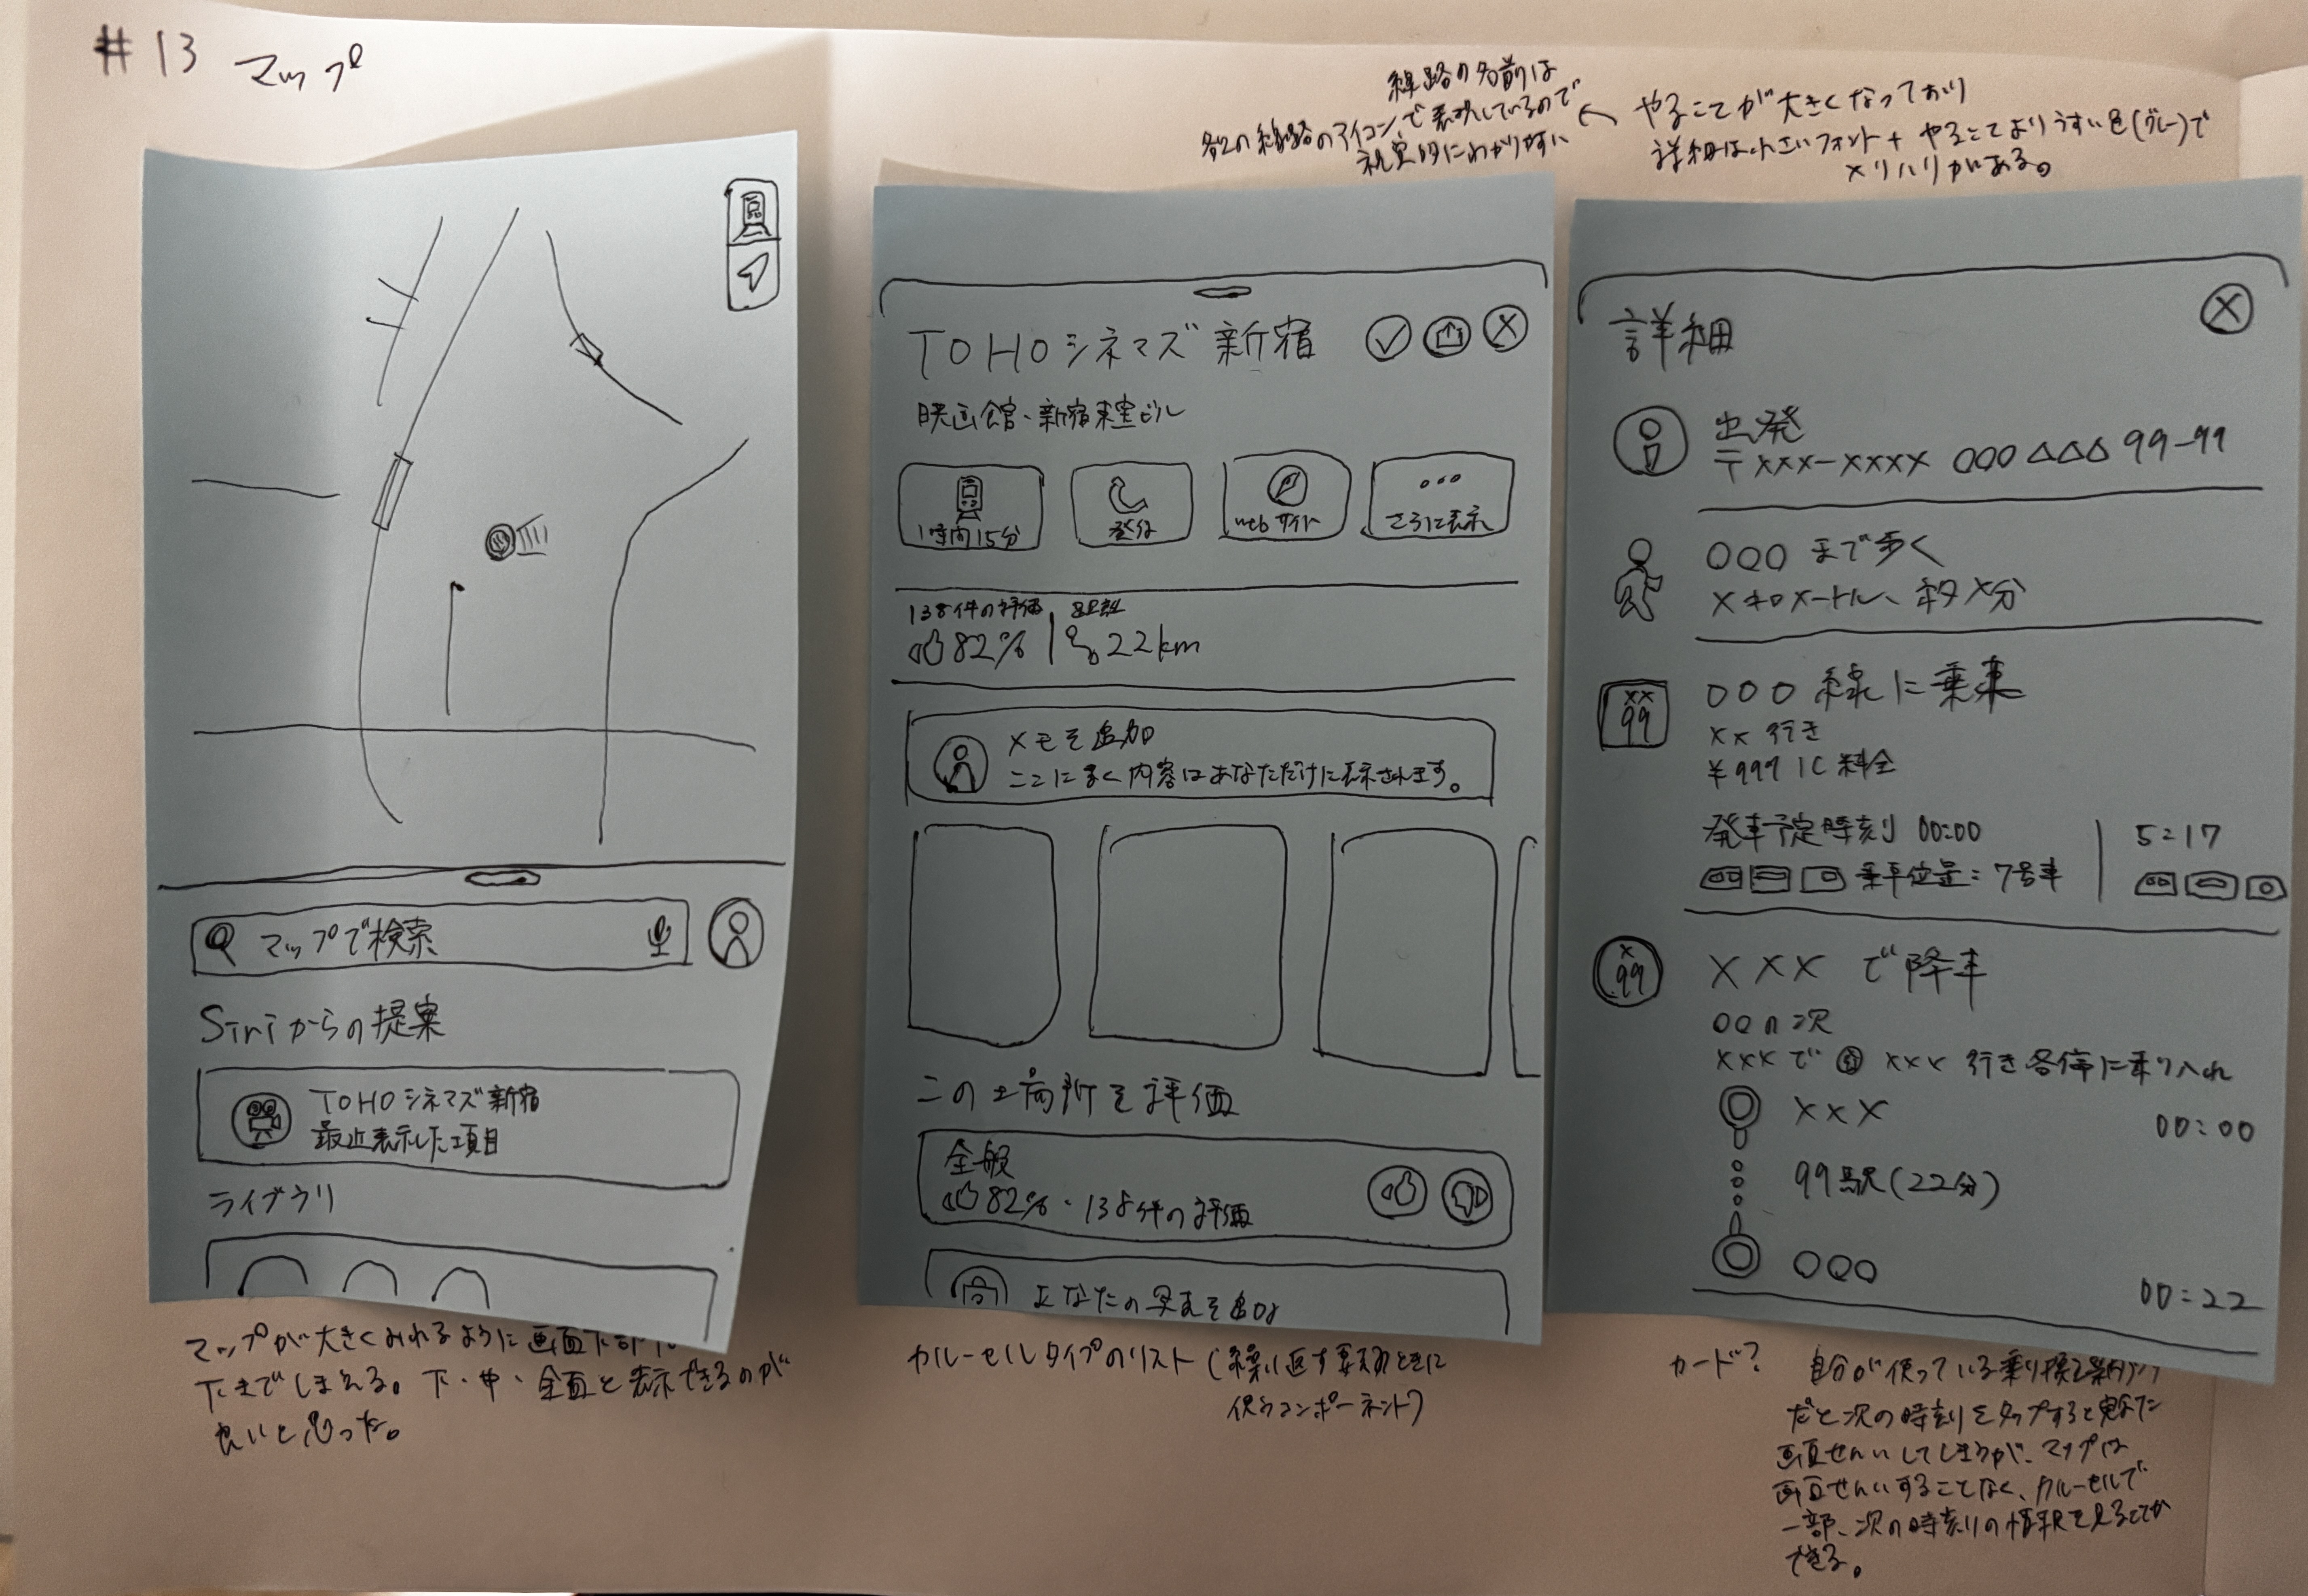 #13 マップ
線路の名前は
各々の線路のアイコンで表現しているので
視覚的にわかりやすい
← やることが大きくなっており
詳細は小さいフォント+やることよりうすい色(グレー)で
メリハリがある。
マップで検索
Siriからの提案
TOHOシネマズ新宿
最近表示した項目
ライブラリ
マップが大きくみれるように画面下部
下までしまえる。下・中・全面と表示できるのが
良いと思った。
TOHOシネマズ 新宿
映画館・新宿東宝ビル
1時間15分
発信
webサイト
さらに表示
138件の評価
82%
距離
22km
メモを追加
ここに書く内容はあなただけに表示されます。
この場所を評価
全般
82%・138件の評価
あなたの写真を追加
カルーセルタイプのリスト(繰り返す要素のときに
使うコンポーネント)
詳細
出発
〒xxx-xxxx ○○○ △△△ 99-99
○○○ まで歩く
×キロメートル、約×分
××
99
○○○ 線に乗車
×× 行き
¥999 IC 料金
発車予定時刻 00:00
乗車位置:7号車
5:17
×
99
××× で降車
○○の次
×××で ××× 行き各停に乗り入れ
×××
00:00
99駅(22分)
○○○
00:22
カード?
自分が使っている乗り換え案内アプリ
だと次の時刻をタップすると異なった
画面せんいしてしまうが、マップは
画面せんいすることなく、カルーセルで
一部、次の時刻の情報を見ることが
できる。